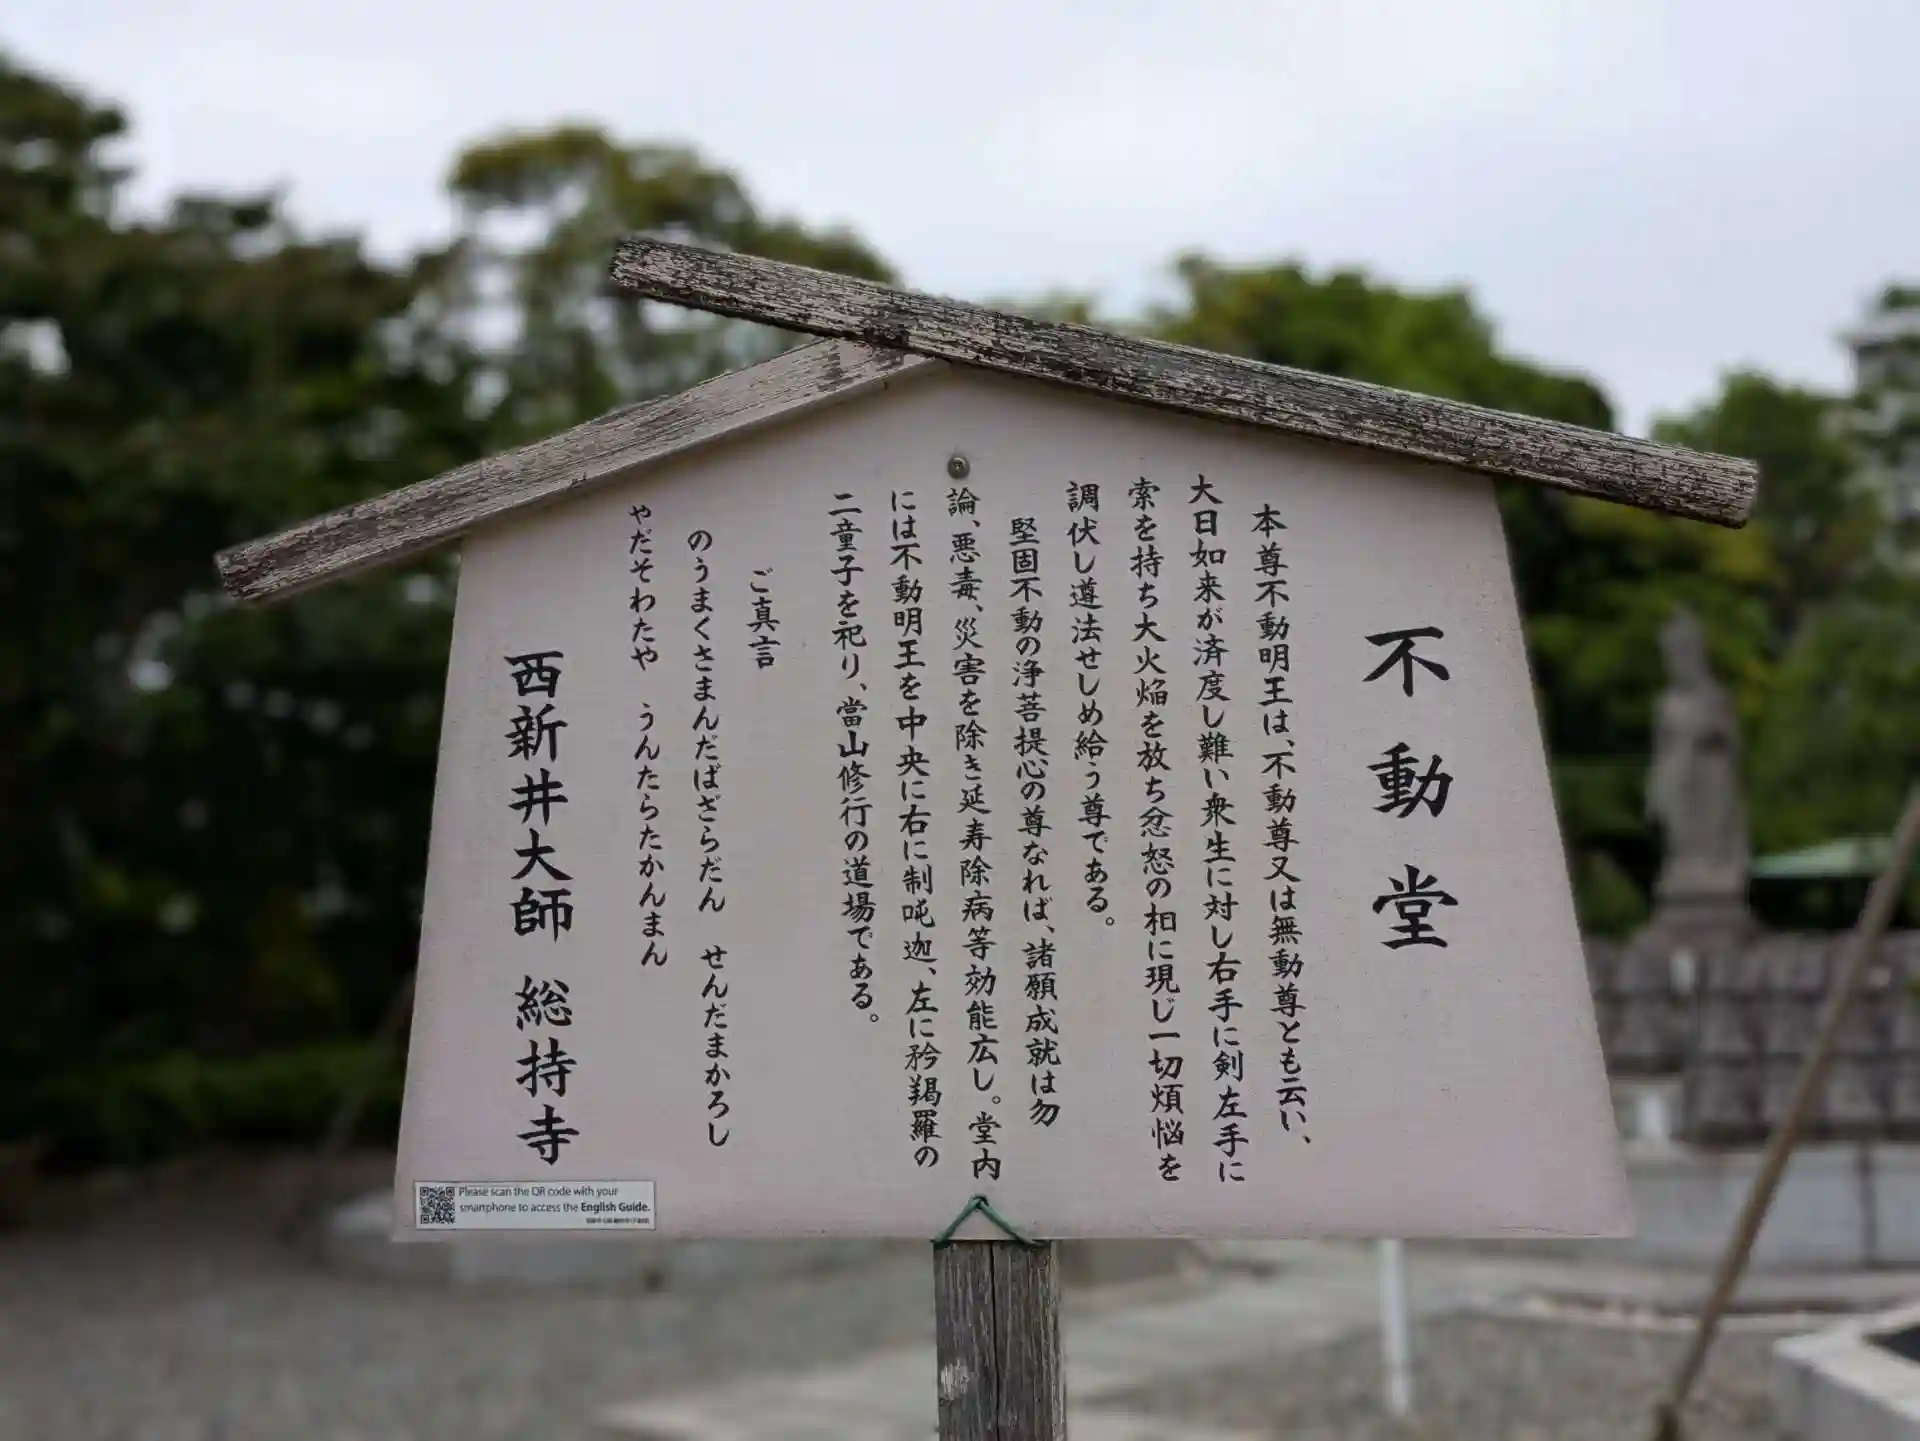 不動堂
本尊不動明王は、不動尊又は無動尊とも云い、
大日如来が済度し難い衆生に対し右手に剣左手に
索を持ち大火焔を放ち忿怒の相に現じ一切煩悩を
調伏し遵法せしめ給う尊である。
堅固不動の浄菩提心の尊なれば、諸願成就は勿
論、悪毒、災害を除き延寿除病等効能広し。堂内
には不動明王を中央に右に制吒迦、左に矜羯羅の
二童子を祀り、當山修行の道場である。
ご真言
のうまくさまんだばざらだん　せんだまかろし
やだそわたや　うんたらたかんまん
西新井大師　総持寺
Please scan the QR code with your
smartphone to access the English Guide.